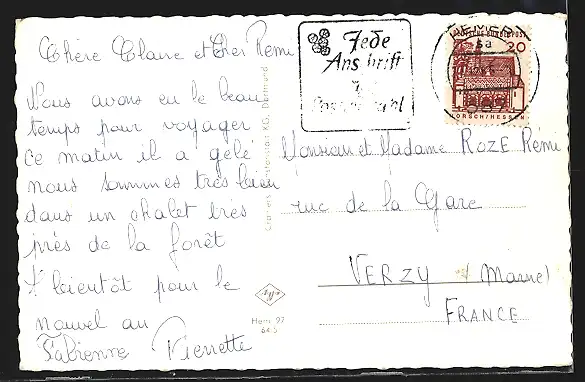 Chère Claire et Cher Rémi
Nous avons eu le beau
temps pour voyager
ce matin il a gelé
nous sommes très bien
dans un chalet très
près de la forêt
A bientôt pour le
nouvel an
Fabienne Pierrette
Jede
Anschrift
Postleitzahl
DEUTSCHE BUNDESPOST
20
LORSCH/HESSEN
Monsieur et Madame ROZE Rémi
rue de la Gare
VERZY (Marne)
FRANCE
Cramers Kunstanstalt KG, Dortmund
Hem 97
64 S